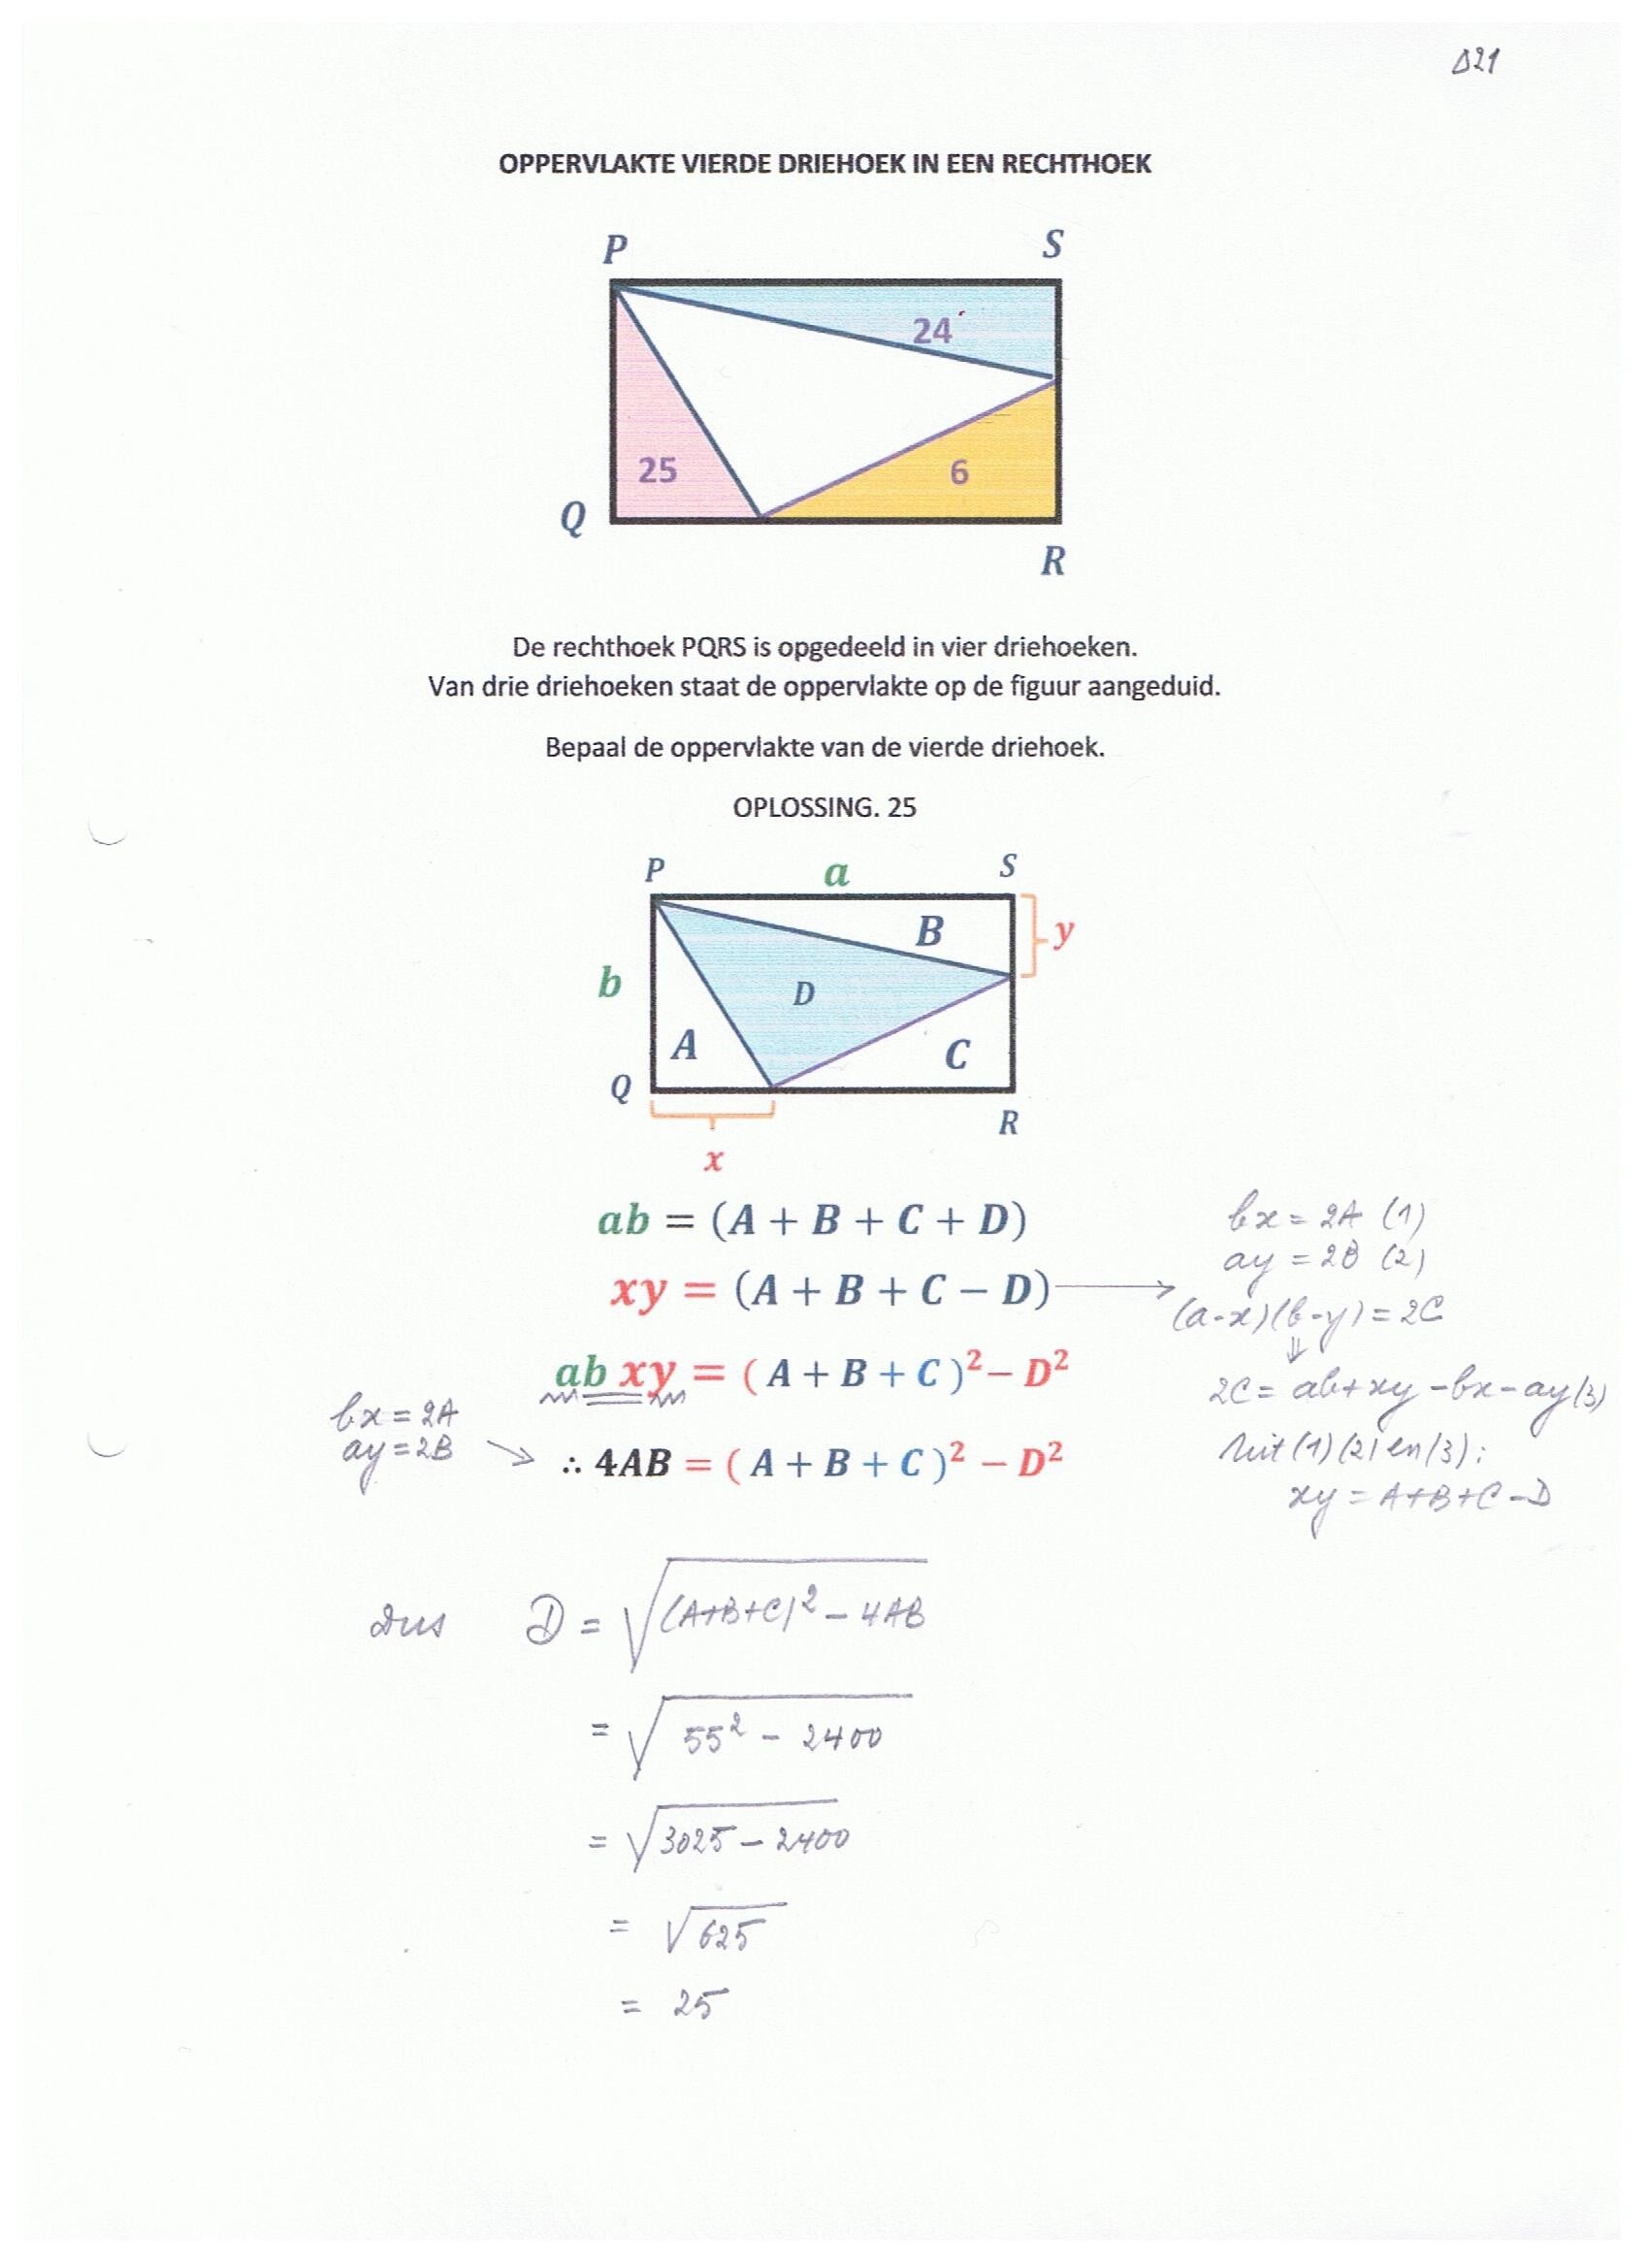 Δ21
OPPERVLAKTE VIERDE DRIEHOEK IN EEN RECHTHOEK
P S
24
25 6
Q
R
De rechthoek PQRS is opgedeeld in vier driehoeken.
Van drie driehoeken staat de oppervlakte op de figuur aangeduid.
Bepaal de oppervlakte van de vierde driehoek.
OPLOSSING. 25
P a S
B y
b D
A C
Q
R
x
ab = (A + B + C + D)
xy = (A + B + C − D)
ab xy = ( A + B + C )² − D²
∴ 4AB = ( A + B + C )² − D²
bx = 2A
ay = 2B
bx = 2A (1)
ay = 2B (2)
(a-x)(b-y) = 2C
⇓
2C = ab + xy − bx − ay (3)
Uit (1) (2) en (3):
xy = A+B+C−D
Dus D = √(A+B+C)² − 4AB
= √55² − 2400
= √3025 − 2400
= √625
= 25